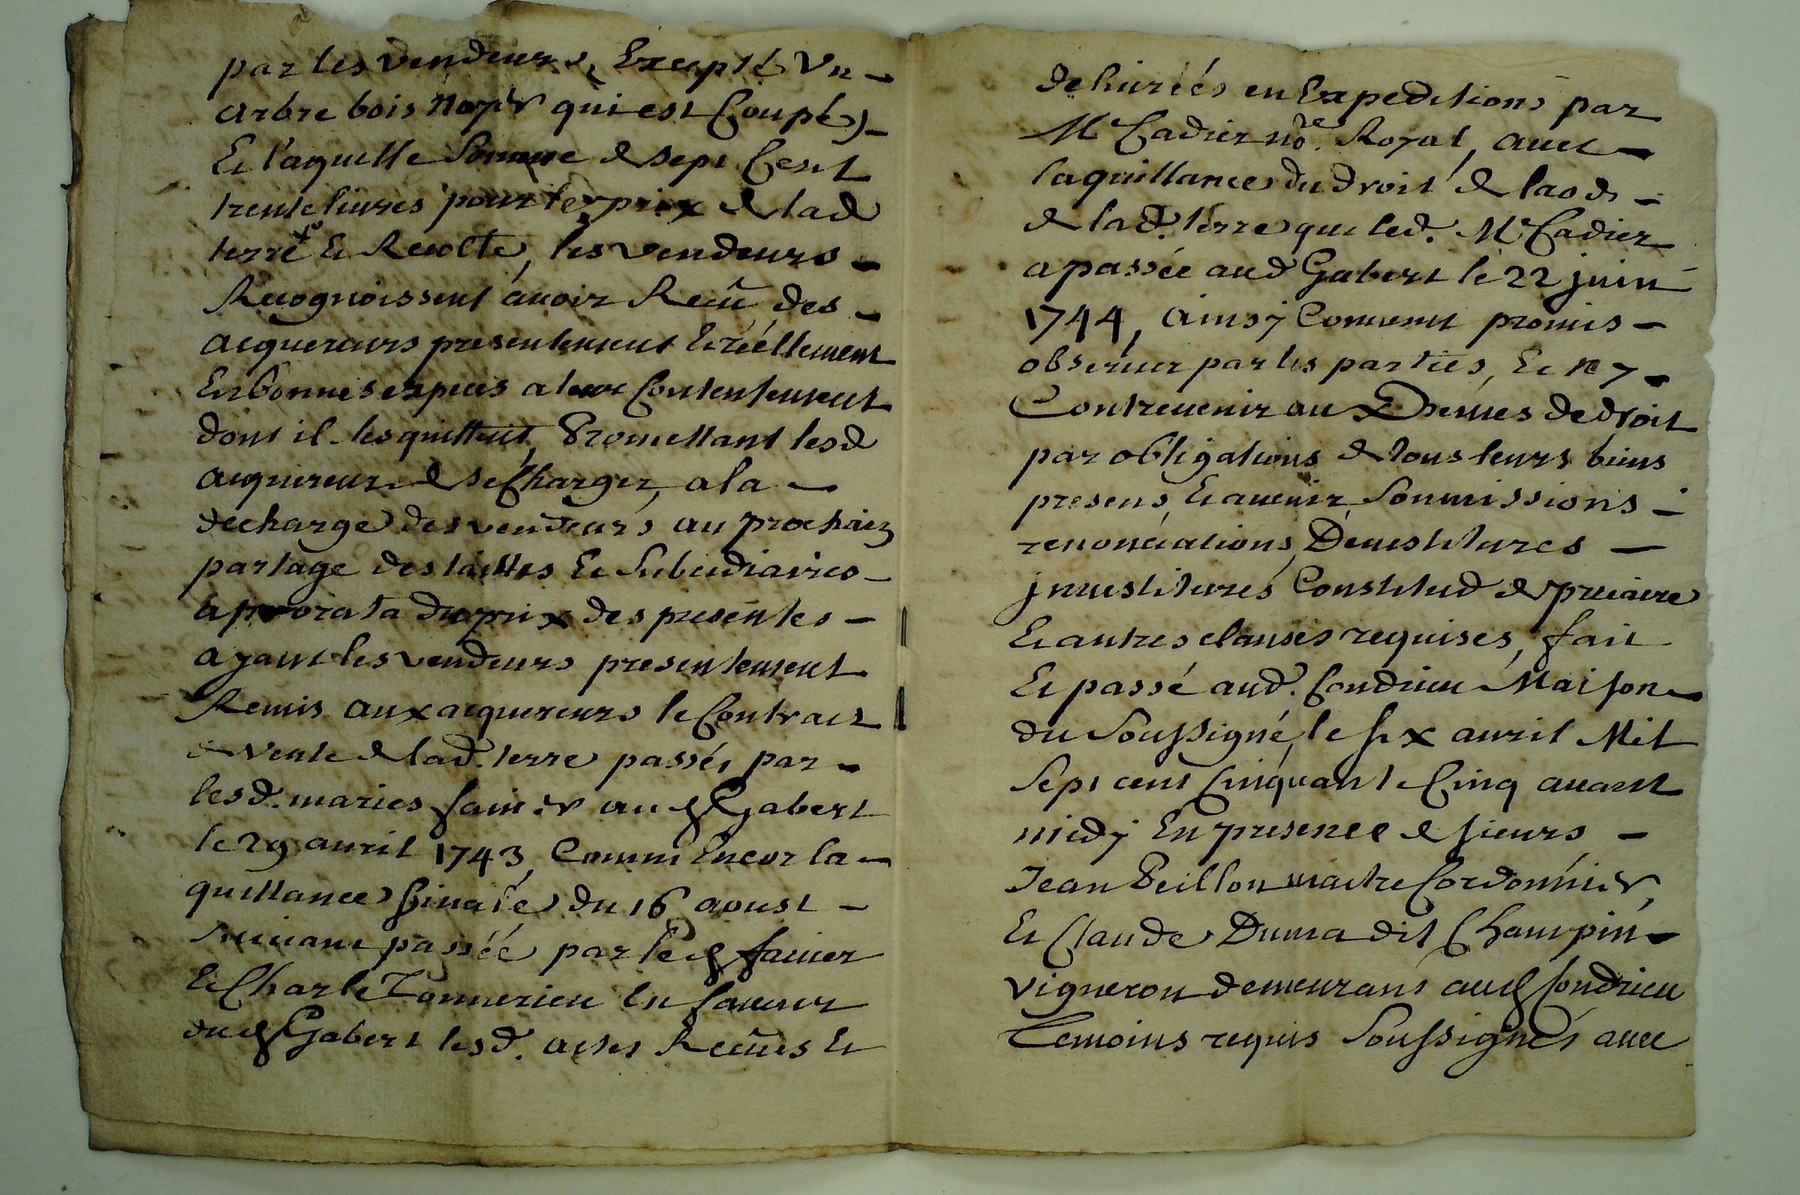 par les vendeurs, Excepté Un
arbre bois Noyer qui est Coupé)
Et laquelle Somme de sept Cent
trente livres pour le prix de lad
terre Et Recolte, les vendeurs
Recognoissent avoir Receu des
acquereurs presentement Et réellement
En bonnes espuis a leur Contentement
dont il les quittent, Promettant lesd
acquereur de se Charger, a la
decharge des vendeurs au prochain
partage des tailles Et Subcidiaires
a prorata du prix des presentes
ayant les vendeurs presentement
Remis aux acquereurs le Contract
de vente de lad. terre passés par
lesd. maries au d Gabert
le 29 avril 1743, Comme Encor la
quittance finale du 16 aoust
Suivant passée par le d
Et Charle En faveur
du d Gabert lesd. actes Receues Et
de livrées en Expeditions par
Mr Cadier nore. Royal, avec
la quittance du droit de laods
de lad. terre que led. Mr Cadier
a passée aud Gabert le 22 juin
1744, ainsy Convenu promis
observer par les parties, Et n y
Contrevenir au de droit
par obligations de tous leurs biens
presens, Et avenir Soumissions
renonciations, Devestitures
jnvestitures Constitud de preciaire
Et autres clauses requises, fait
Et passé aud. Condrieu Maison
du Soussigné, le six avril Mil
Sept cent Cinquante Cinq avant
midy En presence de sieurs
Jean Peillon maitre Cordonnier,
Et Claude Duma dit Champin
vigneron demeurans aud Condrieu
Temoins requis Soussignés avec